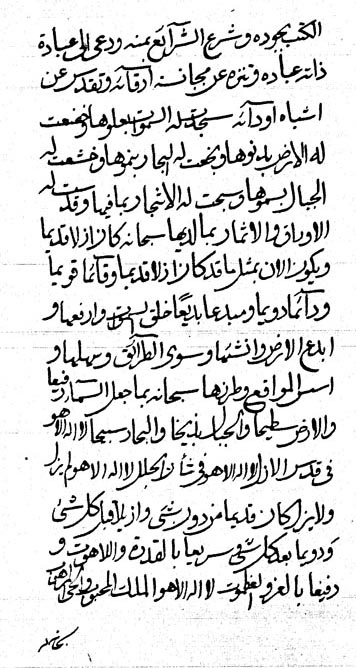 الكتب بجوده و شرع الشرآئع بمنه و دعى الى عبادة
ذاته عباده و تنزه عن مجانسة ارقائه و تقدس عن
اشباه اودآئه سجدت له السموات بعلوها و انخضعت
له الارض بدنوها و بخعت له البحار بنموها و خشعت له
الجبال بسموها و سبحت له الاشجار بما فيها و قدست له
الاوراق و الاثمار بما لديها سبحانه كان ازلا قديما
و يكون الان بمثل ما قد كان ازلا قديما و قآئما قويما
و دآئما دويما و مبدعا بديعا خلق السموات و ارفعها و
ابدع الارض و انشئها و سوى الطرآئق و سهلها و
اسس المواقع و طرزها سبحانه بما جعل السمآء رفيعا
و الارض سطيحا و الجبال بذيخا و البحار سيحا لا اله الا هو
فى قدس الازل لا اله الا هو فى شأن الجلل لا اله الا هو لم يزل
و لا يزال كان قديما من دون شئ و ازيلا قبل كل شئ
و دويما بعد كل شئ سريعا بالقدرة و اللاهوت و
رفيعا بالعز و العظموت لا اله الا هو الملك المحبوب